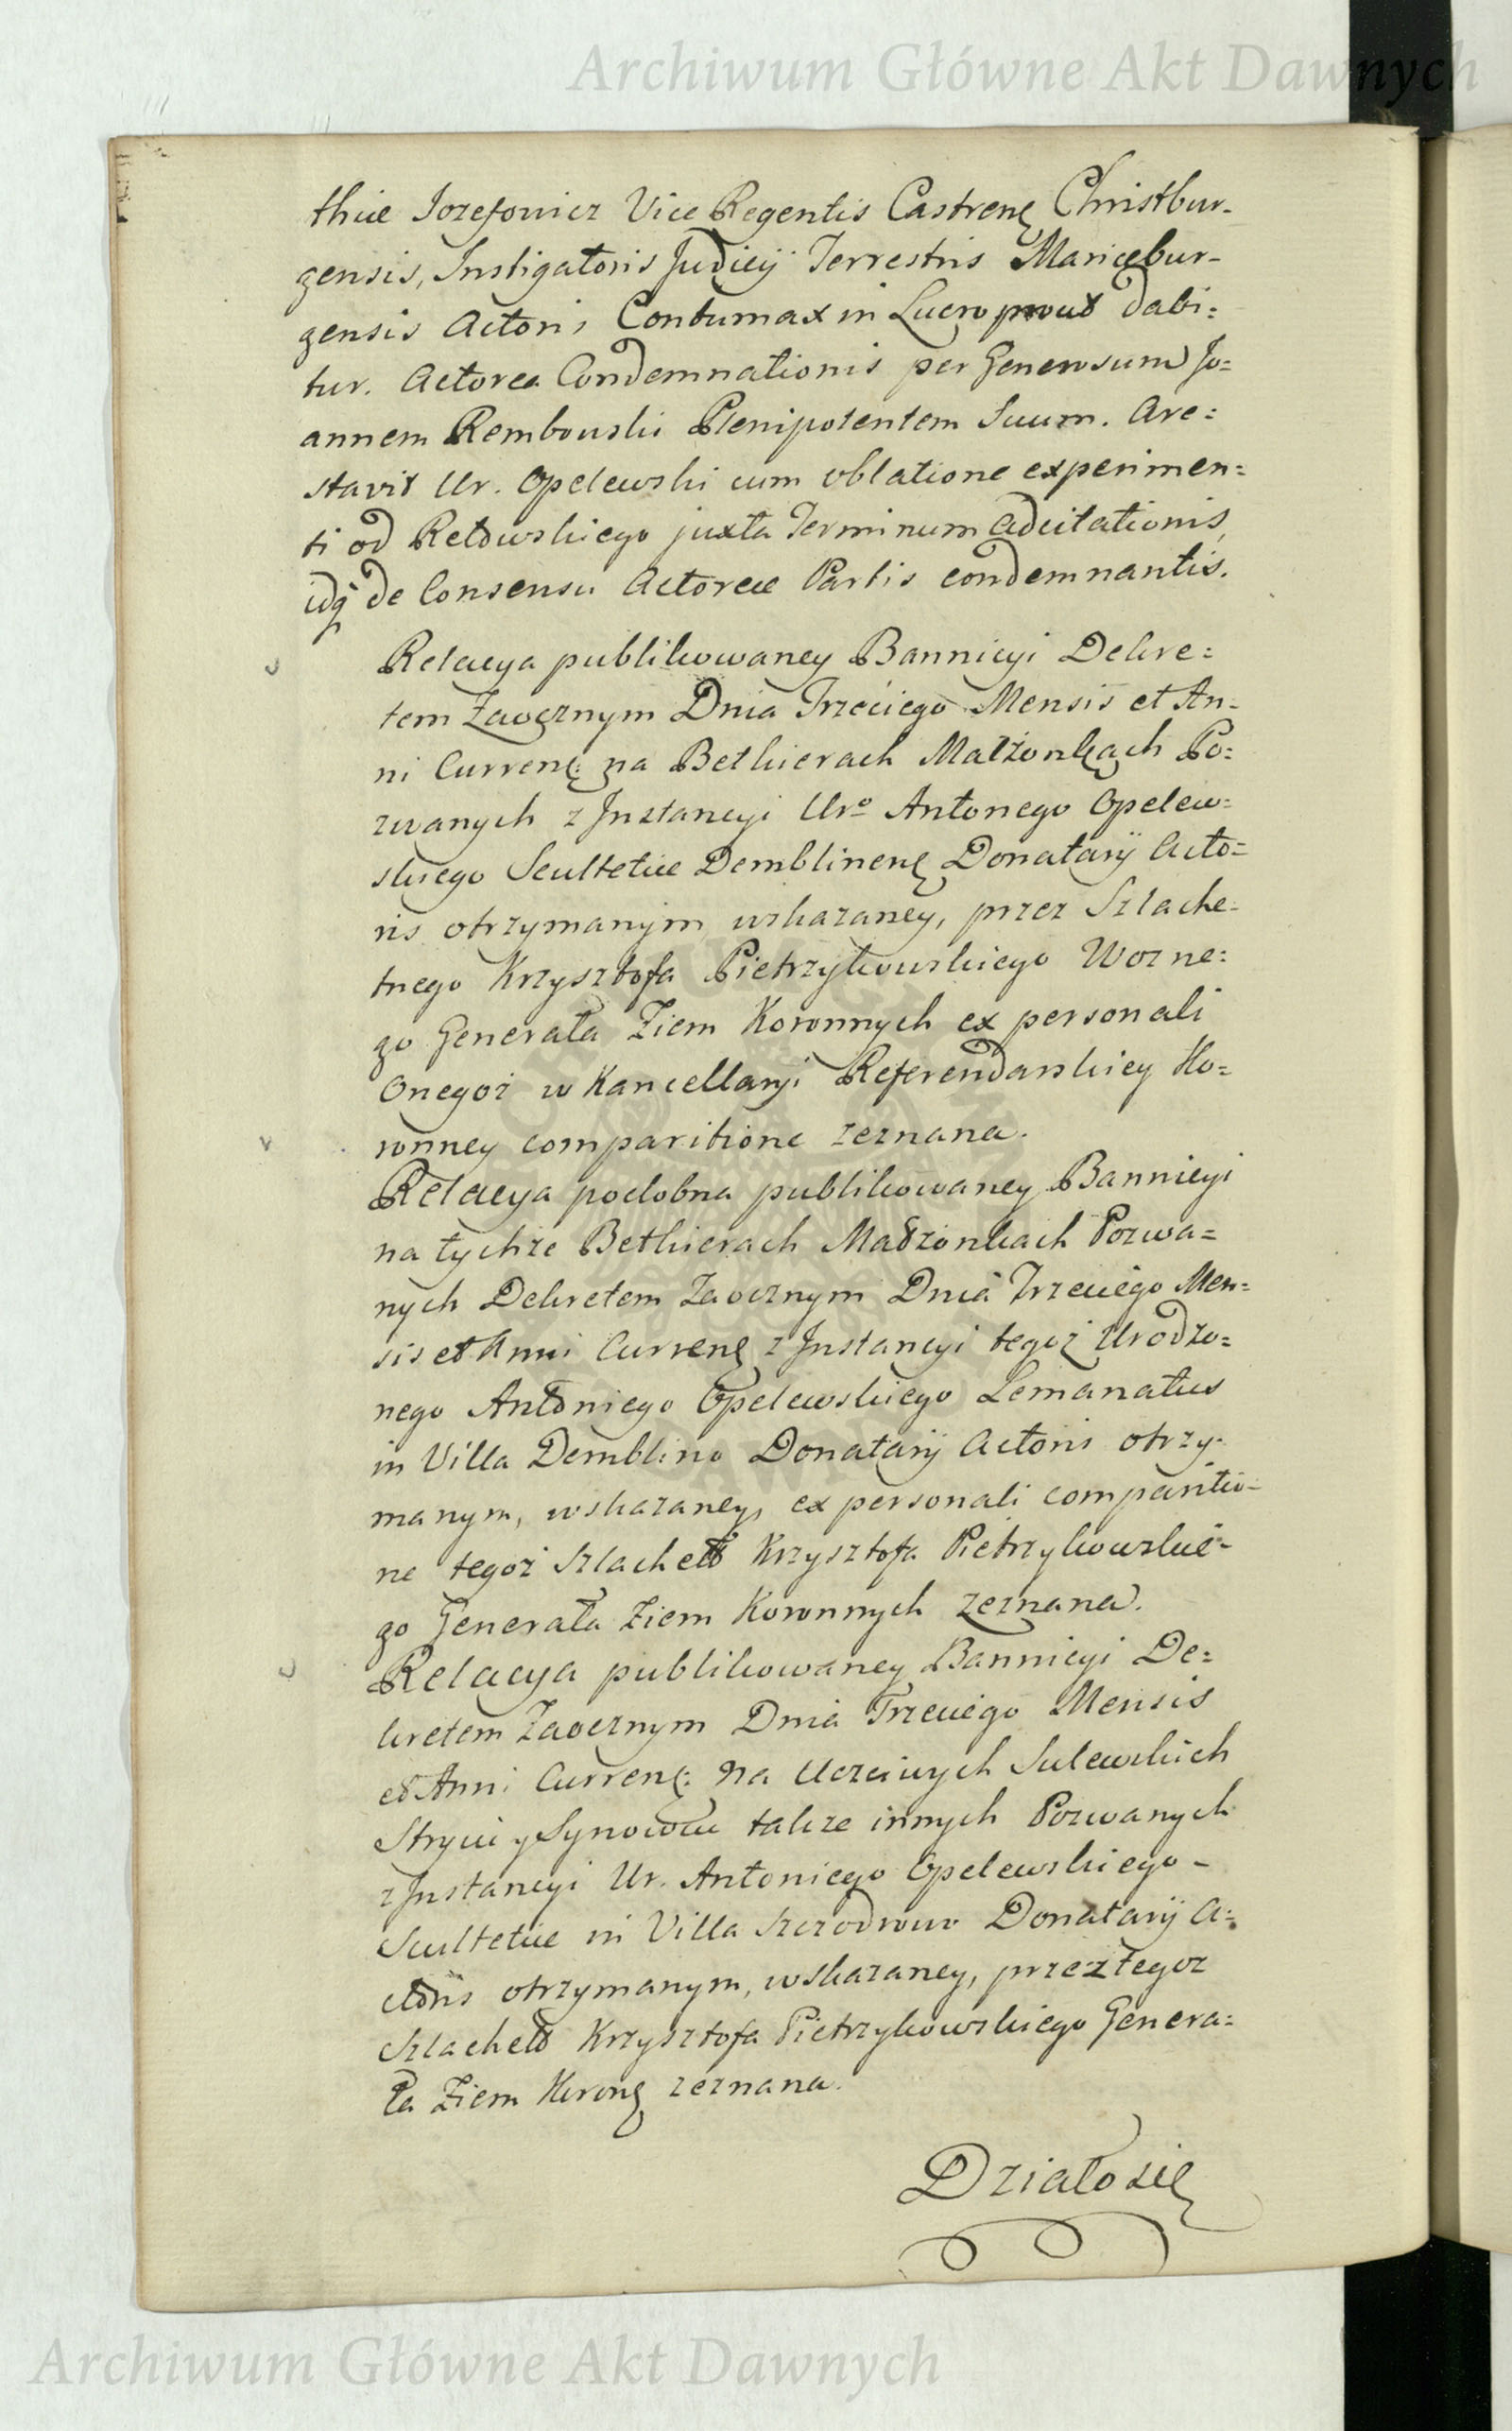 Archiwum Główne Akt Dawnych
thiæ Jozefowicz Vice Regentis Castrenę Christbur-
gensis, Instigatoris Judicÿ Terrestris Mariæbur-
gensis Actoris Contumax in Lucro prout dabi:
tur. Actorea Condemnationis per Generosum Jo=
annem Rembowski Plenipotentem Suum. Are:
stavit Ur. Opelewski cum oblatione experimen:
ti od Retowskiego juxta Terminum adcitationis,
idq de Consensu Actoreæ Partis condemnantis.
Relacya publikowaney Bannicyi Dekre:
tem Zaocznym Dnia Trzeciego Mensis et An-
ni Currenę: na Bethierach Małżonkach Po:
zwanych z Jnstancyi Uro Antonego Opelew:
skiego Scultetiæ Demblinenę Donatarÿ Acto=
ris otrzymanym wskazaney, przez Szlache-
tnego Krzysztofa Pietrzykowskiego Wozne:
go Generała Ziem Koronnych ex personali
Onegoż w Kancellaryi Referendarskiey Ko=
ronney comparitione zeznana.
Relacya podobna publikowaney Bannicyi
na tychże Bethierach Małżonkach Pozwa=
nych Dekretem Zaocznym Dnia Trzeciego Men=
sis et Anni Currenę z Jnstancyi tegoż Urodzo=
nego Antoniego Opelewskiego Lemanatus
in Villa Demblino Donatarÿ Actoris otrzy-
manym, wskazaney, ex personali comparitio-
ne tegoż Szlachett Krzysztofa Pietrzykowskie-
go Generała Ziem Koronnych zeznana.
Relacya publikowaney Bannicyi De:
kretem Zaocznym Dnia Trzeciego Mensis
et Anni Currenę: na Uczciwych Sulewskich
Stryiu y Synowcu także innych Pozwanych
z Jnstancyi Ur. Antoniego Opelewskiego -
Scultetiæ in Villa Szczodrowo Donatarÿ A:
ctoris otrzymanym, wskazaney, przez tegoz
Szlachett Krzysztofa Pietrzykowskiego Genera=
ła Ziem Koronę zeznana.
Działo się
Archiwum Główne Akt Dawnych